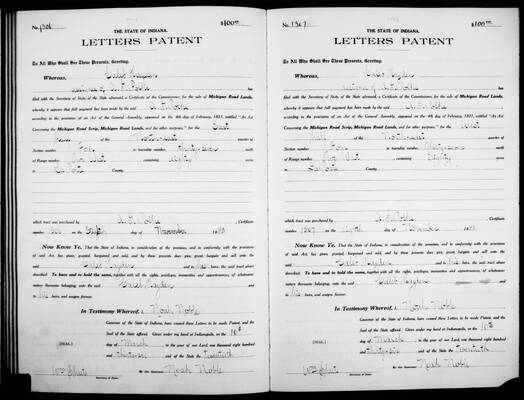 No. 1306 $100.00
THE STATE OF INDIANA.
LETTERS PATENT
To All Who Shall See These Presents, Greeting.
Whereas, Caleb Hayden
assignee of A. F. Noble has
filed with the Secretary of State, of the State aforesaid, a Certificate of the Commissioner, for the sale of Michigan Road Lands,
whereby it appears that full payment has been made by the said
according to the provisions of an Act of the General Assembly, approved on the 4th day of February, 1832, entitled "An Act
Concerning the Michigan Road Scrip, Michigan Road Lands, and for other purposes," for the East
Half of the Northwest quarter of
Section Four in township number Thirty-seven north
of Range number West containing Eighty acres
in LaPorte County,
which tract was purchased by , Certificate
number on day of November 18
Now Know Ye, That the State of Indiana, in consideration of the premises, and in conformity with the provisions
of said Act, has given, granted, bargained and sold, and by these presents does give, grant, bargain and sell unto the
said Caleb Hayden and his heirs, the said tract above
described: To have and to hold the same, together with all the rights, privileges, immunities and appurtenances, of whatsoever
nature thereunto belonging, unto the said Caleb Hayden
and his heirs, and assigns forever.
In Testimony Whereof, I Noah Noble
Governor of the State of Indiana, have caused these Letters to be made Patent, and the
Seal of the State affixed. Given under my hand at Indianapolis, on the 10th
(SEAL) day of March in the year of our Lord, one thousand eight hundred
and thirty-six and of the State the twentieth
Wm Sheets By the Governor Noah Noble
Secretary of State.
No. 1307 $100.00
THE STATE OF INDIANA.
LETTERS PATENT
To All Who Shall See These Presents, Greeting.
Whereas, Caleb Hayden
assignee of A. F. Noble has
filed with the Secretary of State, of the State aforesaid, a Certificate of the Commissioner, for the sale of Michigan Road Lands,
whereby it appears that full payment has been made by the said
according to the provisions of an Act of the General Assembly, approved on the 4th day of February, 1832, entitled "An Act
Concerning the Michigan Road Scrip, Michigan Road Lands, and for other purposes," for the West
Half of the Northwest quarter of
Section Four in township number Thirty-seven north
of Range number West containing Eighty acres
in LaPorte County,
which tract was purchased by , Certificate
number 1307 on day of November 18
Now Know Ye, That the State of Indiana, in consideration of the premises, and in conformity with the provisions
of said Act, has given, granted, bargained and sold, and by these presents does give, grant, bargain and sell unto the
said Caleb Hayden and his heirs, the said tract above
described: To have and to hold the same, together with all the rights, privileges, immunities and appurtenances, of whatsoever
nature thereunto belonging, unto the said Caleb Hayden
and his heirs, and assigns forever.
In Testimony Whereof, I Noah Noble
Governor of the State of Indiana, have caused these Letters to be made Patent, and the
Seal of the State affixed. Given under my hand at Indianapolis, on the 10th
(SEAL) day of March in the year of our Lord, one thousand eight hundred
and thirty-six and of the State the twentieth
Wm Sheets By the Governor Noah Noble
Secretary of State.